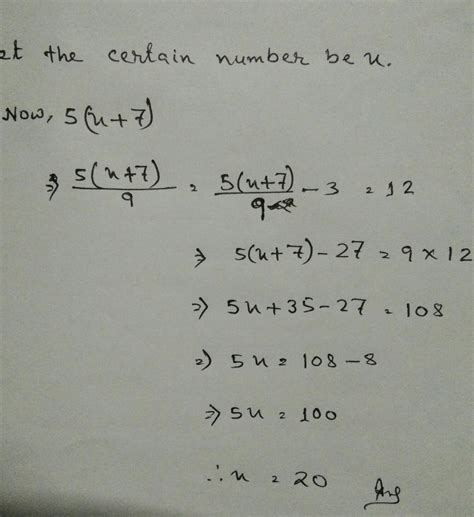 et the certain number be x.
Now, 5(x+7)
⇒ 5(x+7)/9 = 5(x+7)/9 - 3 = 12
⇒ 5(x+7) - 27 = 9 × 12
⇒ 5x + 35 - 27 = 108
⇒ 5x = 108 - 8
⇒ 5x = 100
∴ x = 20 Ans